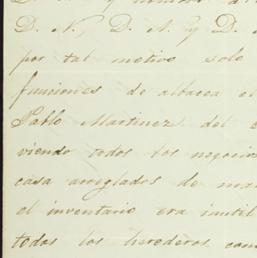 D. N., D. N. y D.
por tal motivo solo
funciones de albacea el
Pablo Martinez del
viendo todos los negocios
casa arreglados de
el inventario era inutil
todos los herederos